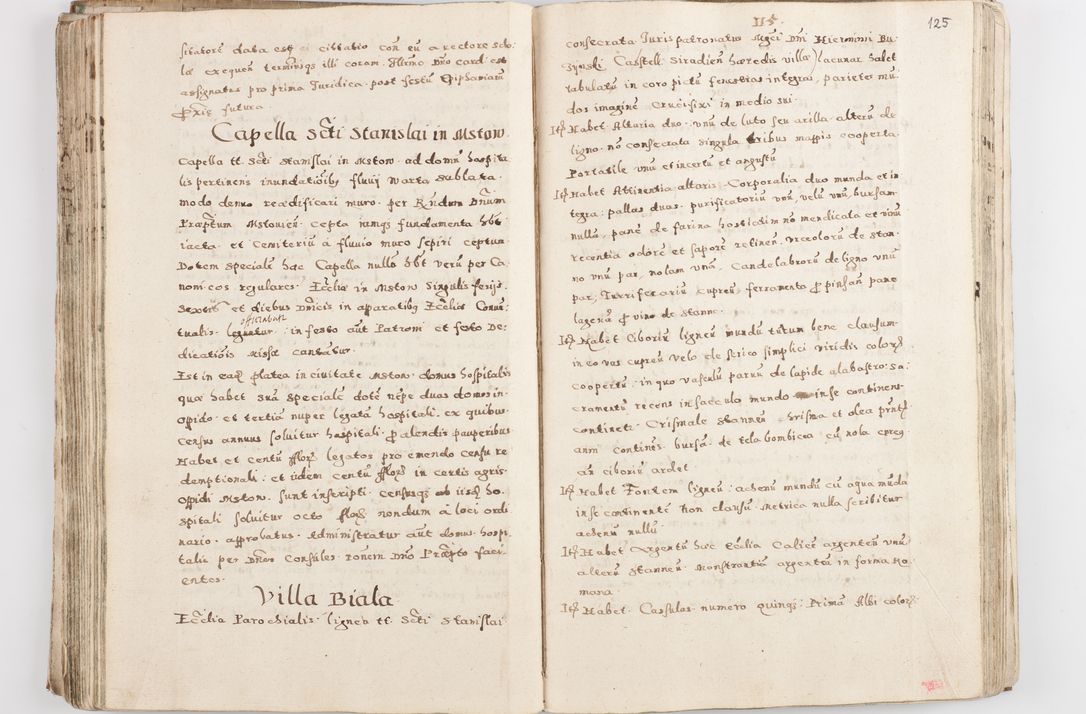 sitatore data est ei citatio con eũ a rectore scho:
læ exequen terminusq illi coram Illrmo Dno card est
assignatus pro prima Juridica post festũ Epiphaniarũ
pxiẽ futura.
Capella Scti Stanislai in Mstow.
Capella tt. Scti Stanislai in Mstow. ad domũ hospita
lis pertinens inundatiõibs fluvij Warta sublata.
modo denuo reædificari muro. per Rñdum Dñum
Præptum Mstovień. cepta iamqs fundamenta hbt
iacta. et Cemiteriũ a fluvio muro sepiri ceptum
Dotem speciale hæc Capella nullã hbt verũ per Ca,
nonicos regulares Eccliæ in Mstow singulis ferijs.
Sextis et diebus Dnicis in apparatibs Eccliæ Conve:
officiabatr
tualis. leguntur. in festo aut Patroni et festo De:
dicatiõis Missæ cantãtur.
Est in eadẽ platea in civitate Mstow. domus hospitalis
quæ habet suã speciale dotẽ nẽpe duas domos in.
oppido. et tertiã nuper legatã hospitali. ex quibus.
census annuus solvitur hospitali. p alendis pauperibus
Habet et centũ flor legatos pro emendo censu re
demptionali. et iidem centũ flor in certis agris.
Oppidi Mstow. sunt inscripti. censusqs ab iisdẽ ho,
spitali solvitur octo flor nondum a loci ordi
nario. approbatus. Administratur aut domus hospi:
talis per Dnos Consules ronem Dno Præpto faci
entes.
Villa Biala
Ecclia Parochialis. lignea tt. Scti Stanislai
115.
125
consecrata Juris patronatus Mgci Dni Hieronimi Bu:
zynski Castell: Siradień hæredis villæ) lacunar habet
tabulatũ in coro pictũ fenestras integras, parietes nu:
dos imaginẽ Crucifixi in medio sui.
Itẽ Habet Altaria duo. unũ de luto seu arilla. alterũ de
ligno. nõ consecrata singula tribus mappis cooperta.
Portatile unũ et incertũ et angustũ
Itẽ Habet Attinentia altaris. Corporalia duo munda et in
tegra. pallas duas. purificatoriũ unũ, velũ unũ, bursam.
nullã, panẽ de farina hosticidim nõ mendicata et vinũ
recentia odorẽ et saporẽ retinen. urceolorũ de stan.
no unũ par, nolam unã, Candelabrorũ de ligno unũ
par, Turriferariũ cupreũ, ferramenta p pinsań pane
lagenã p vino de stanno.
Itẽ Habet Ciboriũ ligneũ mundũ tutum bene clausum.
in eo vas cupreũ velo de serico simplici viridis coloris
coopertũ. in quo vasculũ parvũ de lapide alabastro. sa:
cramentũ recens in sacculo mundo in se continens.
continetr. Crismale stanneũ chrisma et olea pnts
anni continẽs bursã. de tela bombicea cũ nola coreg
an ciboriũ ardet.
Itẽ Habet Fontem ligneũ. ahenũ mundũ cũ aqua mũda
in se continentẽ Non clausũ. Metrica nulla scribitur
ahenũ nullũ.
Itẽ Habet Argentũ hæc Ecclia Calicẽ argenteũ unũ
alterũ stanneũ. Monstrantiã argenteã in forma Ro,
mana.
Itẽ Habet. Casulas. numero quinqs. Prima Albi coloris